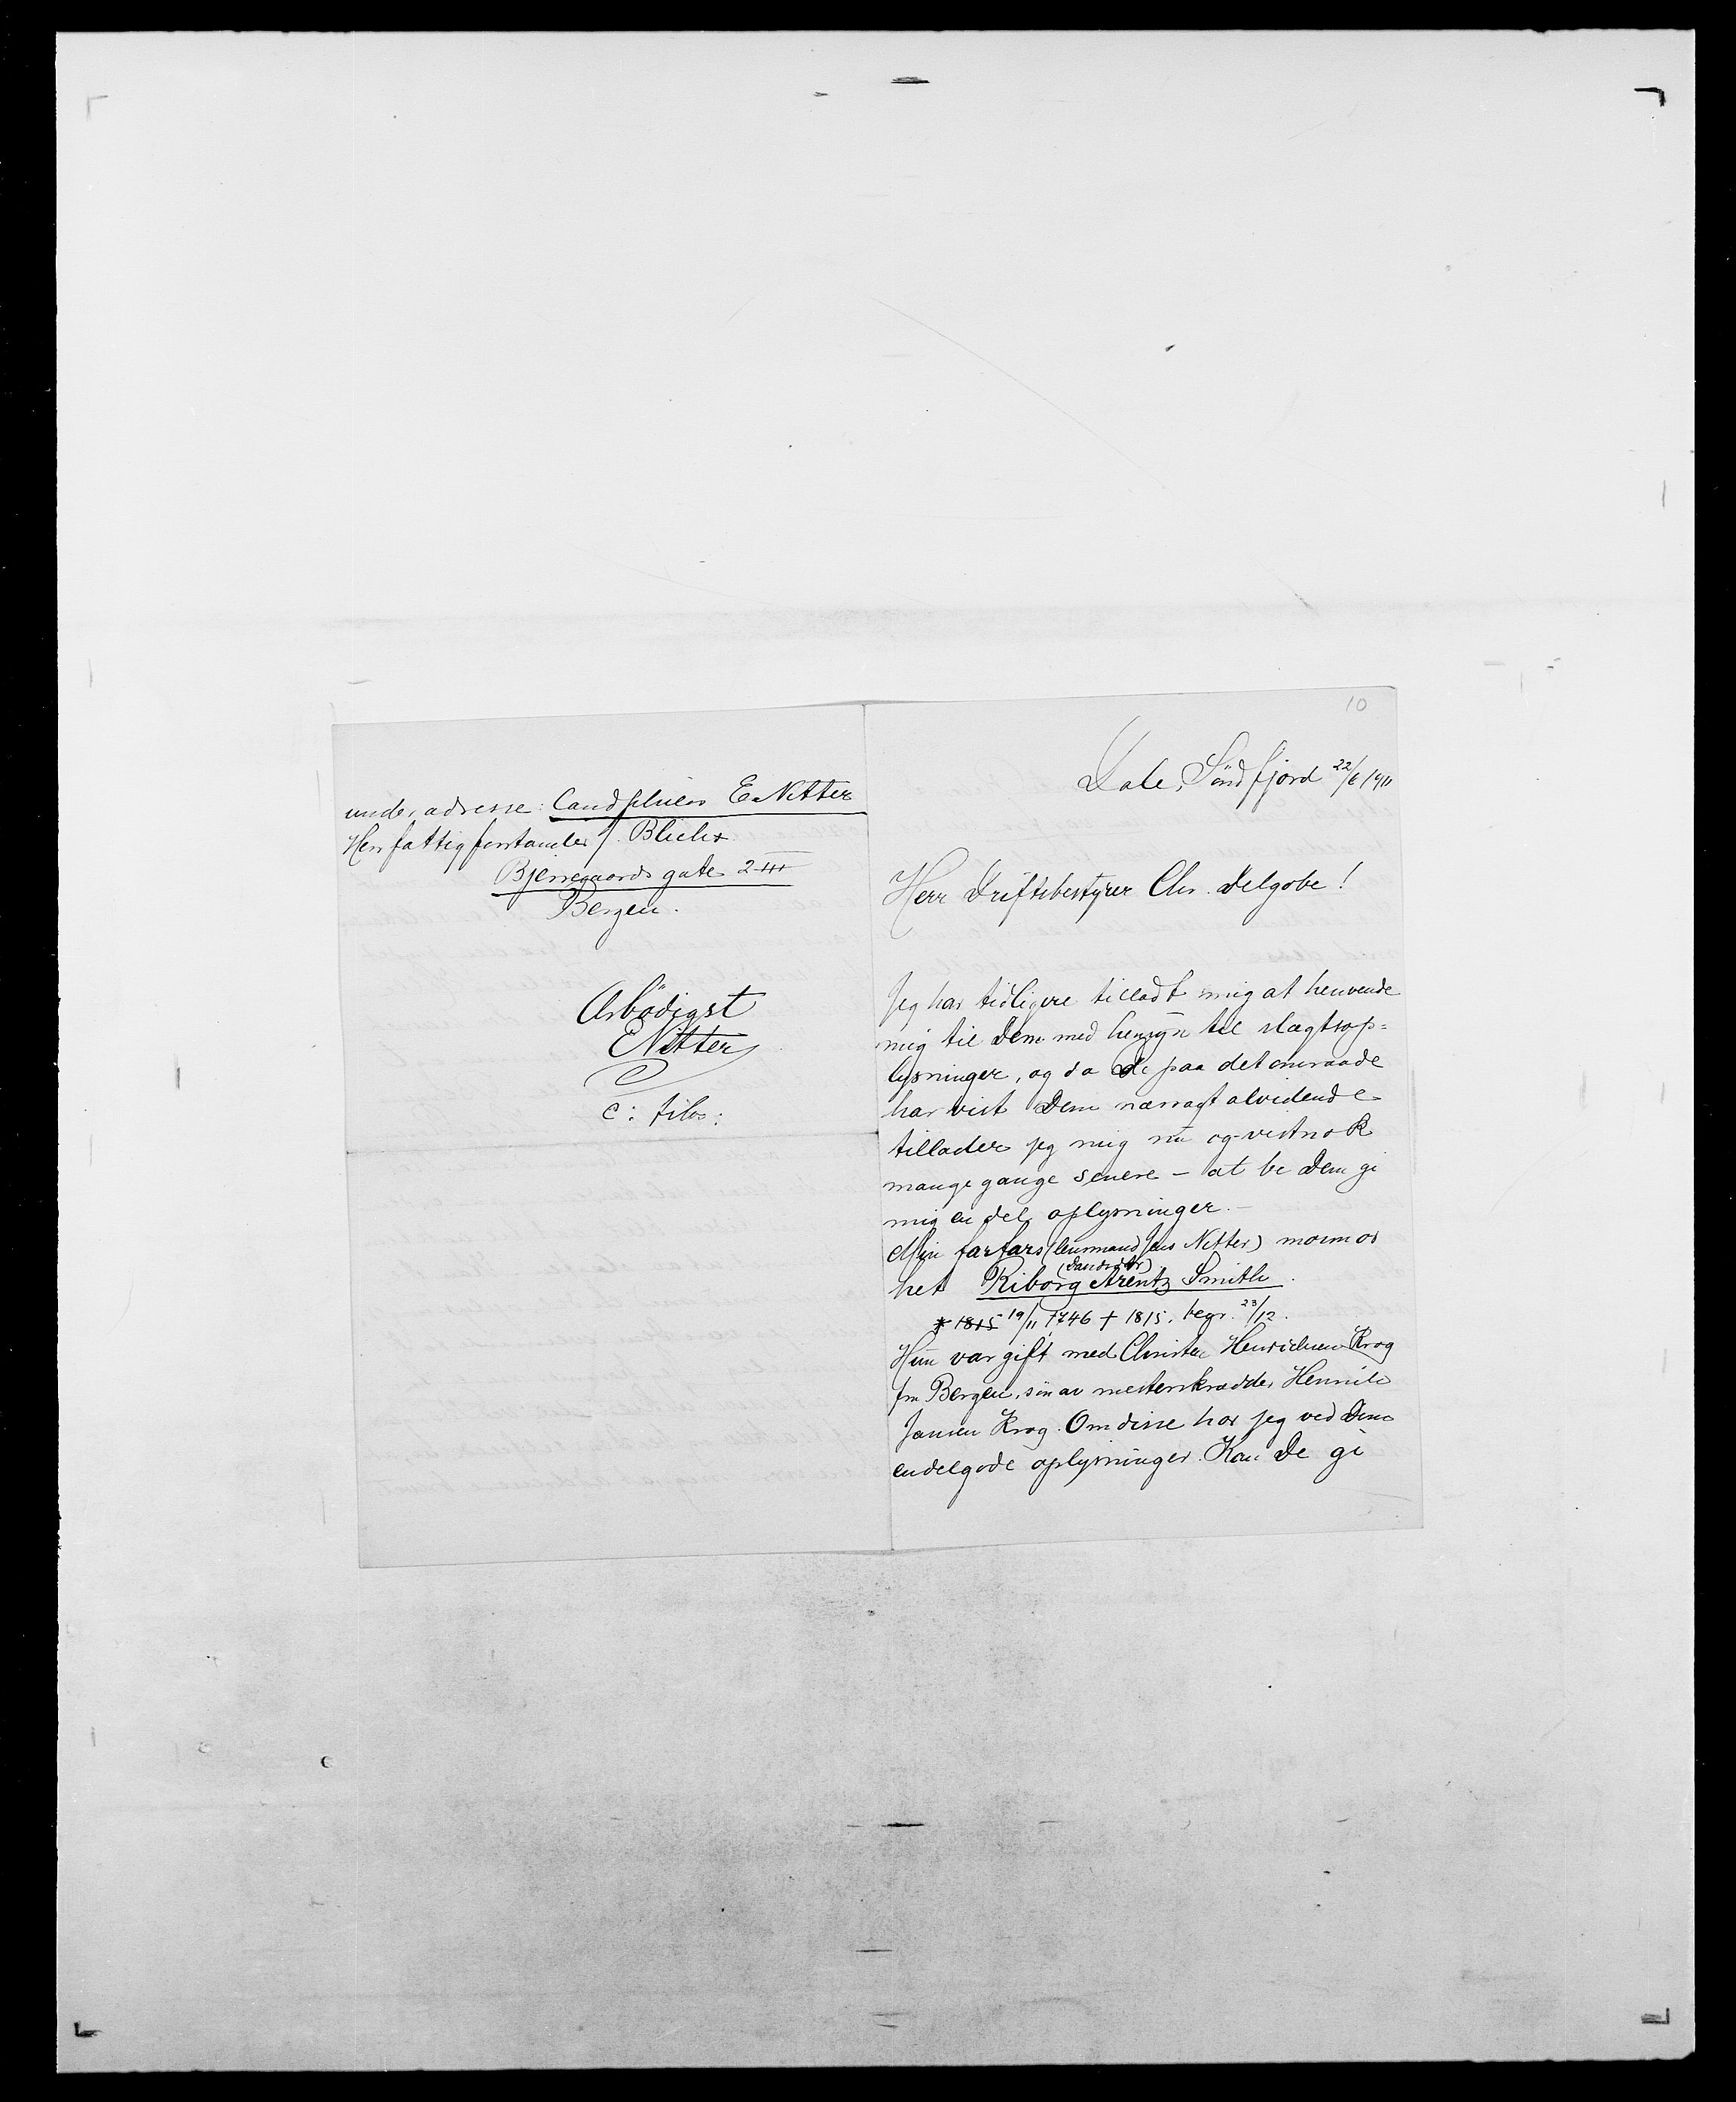 under adresse: Cand philos E. Nitter
Herr fattigforstander J. Blichs
Bjerregaards gate 2 III
Bergen.
Ærbödigst
ENitter
c: filos:
10
Dale, Söndfjord 22/6 1911
Herr Driftsbestyrer Chr. Delgobe!
Jeg har tidligere tilladt mig at henvende
mig til Dem med hensyn til slægtsop=
lysninger, og da De paa det omraade
har vist Dem næsagt alvidende
tillader jeg mig nu og vistnok
mange gange senere – at be Dem gi
mig en del oplysninger. –
Min farfars (lensmand Jens Nitter) mormor
het Riborg (Davidsdtr) Arentz Smith.
* 1815 19/11 1746 † 1815, begr. 23/12.
Hun var gift med Christen Henrichsen Krog
fra Bergen, sön av mesterskrædder Henrik
Jansen Krog. Om disse har jeg ved Dem
endel gode oplysninger. Kan De gi